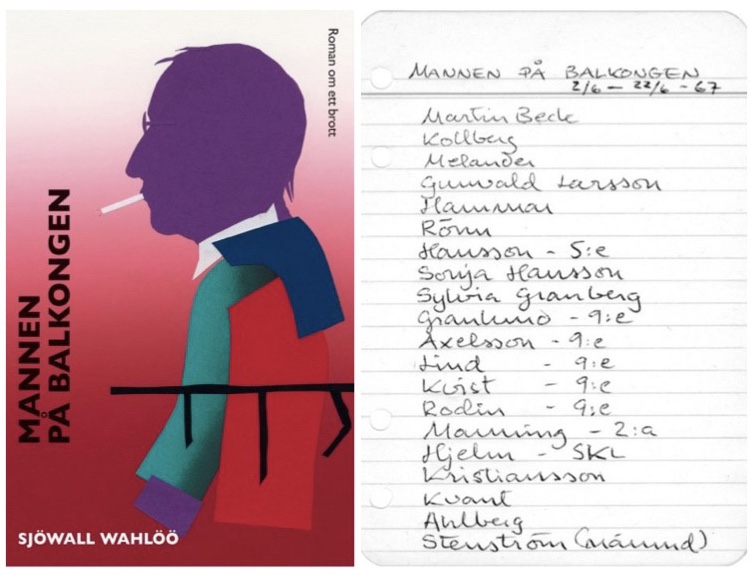 Roman om ett brott
MANNEN
PÅ BALKONGEN
SJÖWALL WAHLÖÖ
MANNEN PÅ BALKONGEN
2/6 – 22/6 – 67
Martin Beck
Kollberg
Melander
Gunvald Larsson
Hammar
Rönn
Hansson – 5:e
Sonja Hansson
Sylvia Granberg
Granlund – 9:e
Axelsson – 9:e
Lind – 9:e
Kvist – 9:e
Rodin – 9:e
Manning – 2:a
Hjelm – SKL
Kristiansson
Kvant
Ahlberg
Stenström (nämnd)